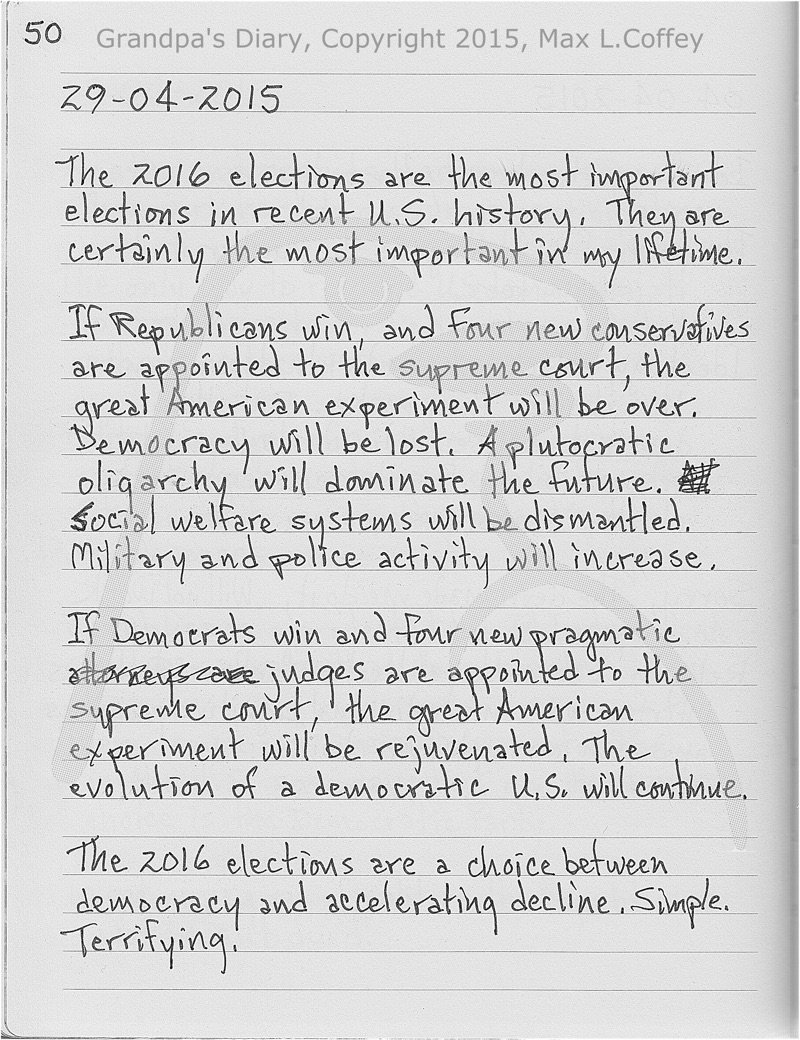 50 Grandpa's Diary, Copyright 2015, Max L.Coffey
29-04-2015
The 2016 elections are the most important
elections in recent U.S. history. They are
certainly the most important in my lifetime.
If Republicans win, and four new conservatives
are appointed to the supreme court, the
great American experiment will be over.
Democracy will be lost. A plutocratic
oligarchy will dominate the future.
Social welfare systems will be dismantled.
Military and police activity will increase.
If Democrats win and four new pragmatic
judges are appointed to the
supreme court, the great American
experiment will be rejuvenated. The
evolution of a democratic U.S. will continue.
The 2016 elections are a choice between
democracy and accelerating decline. Simple.
Terrifying.